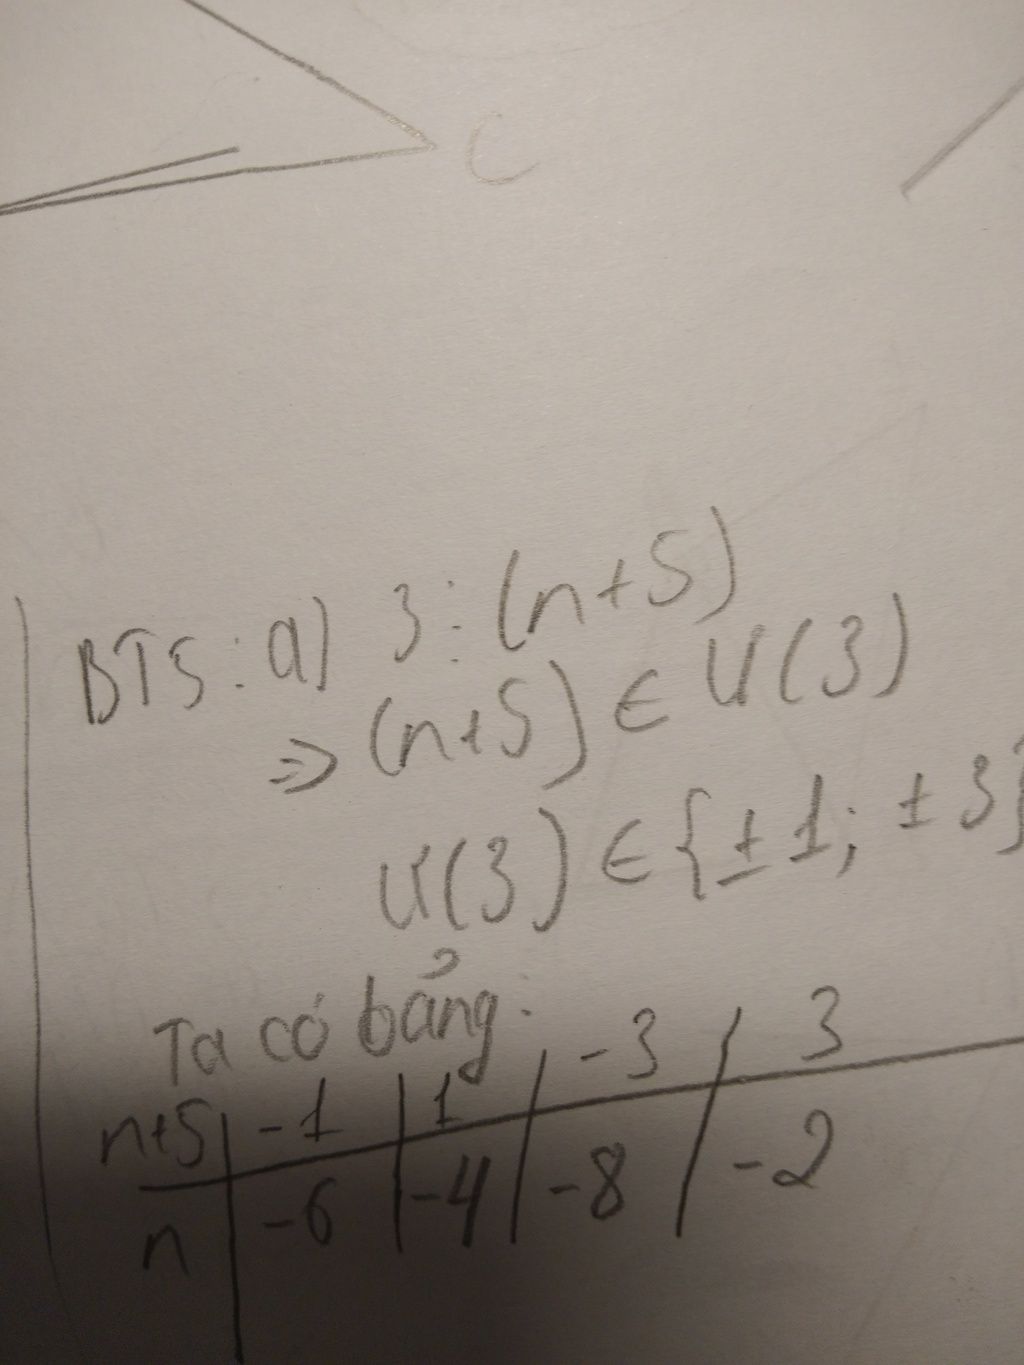 C
BT5: a) 3 : (n+5)
=> (n+5) ∈ Ư(3)
Ư(3) ∈ {±1; ±3}
Ta có bảng:
n+5 | -1 | 1 | -3 | 3
n | -6 | -4 | -8 | -2